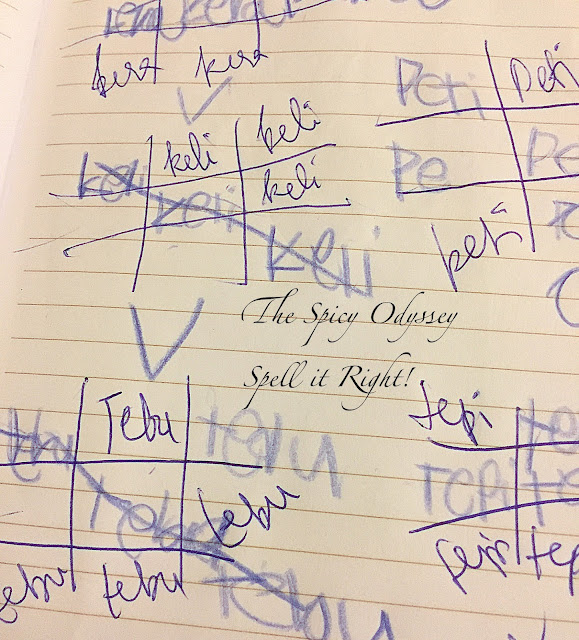 kera kera
Peti Peti
keli keli
keli keli
keli
Keli
Pe Pe
peti
The Spicy Odyssey
Spell it Right!
Tebu tebu
Tebu tebu
tebu tebu
Tebu
tepi te
TEPi te
tepi tepi